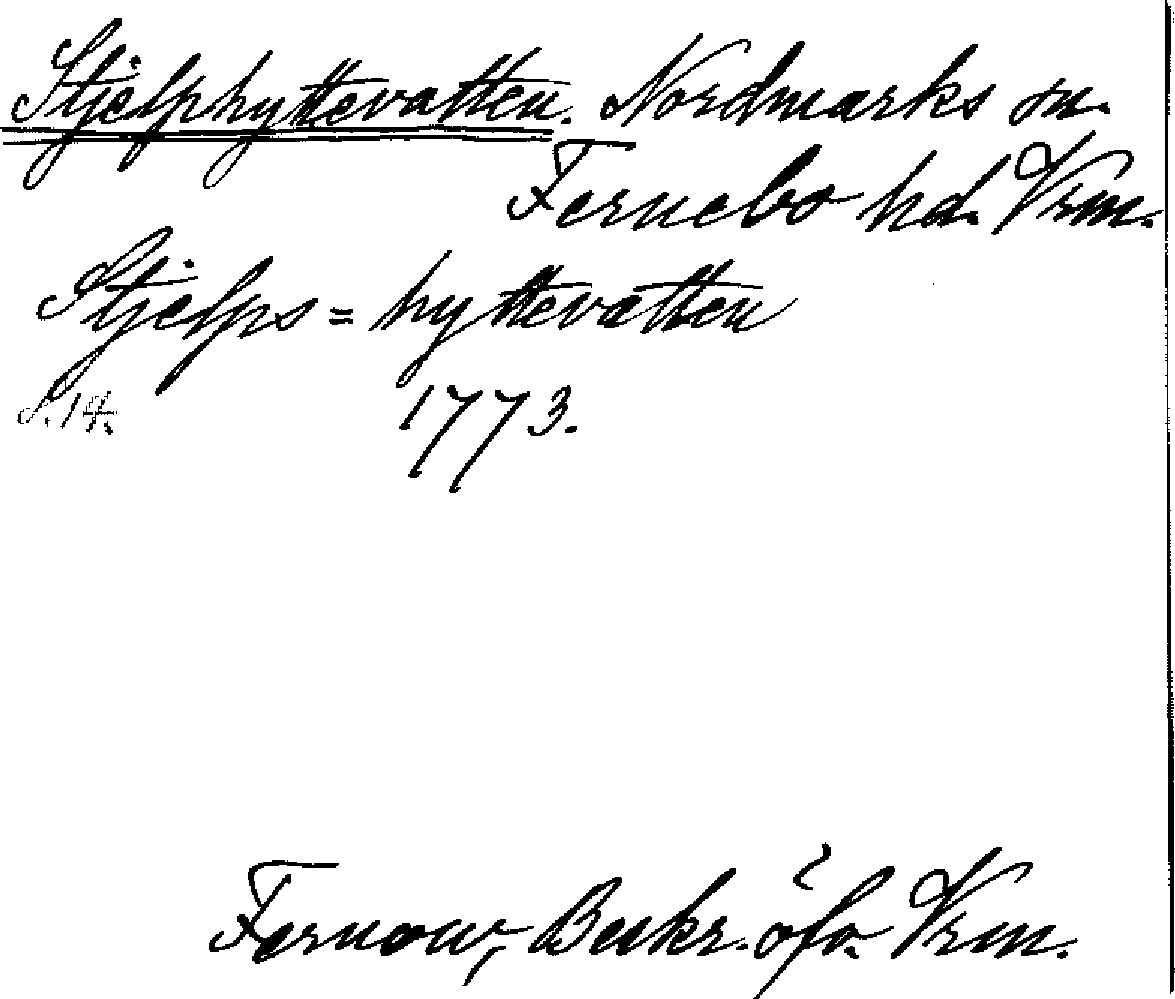 Stjelphyttevatten. Nordmarks sn.
Fernebo hd. Vrm.
Stjelps=hyttevatten
S. 14. 1773.
Fernow, Beskr. öfv. Vrm.